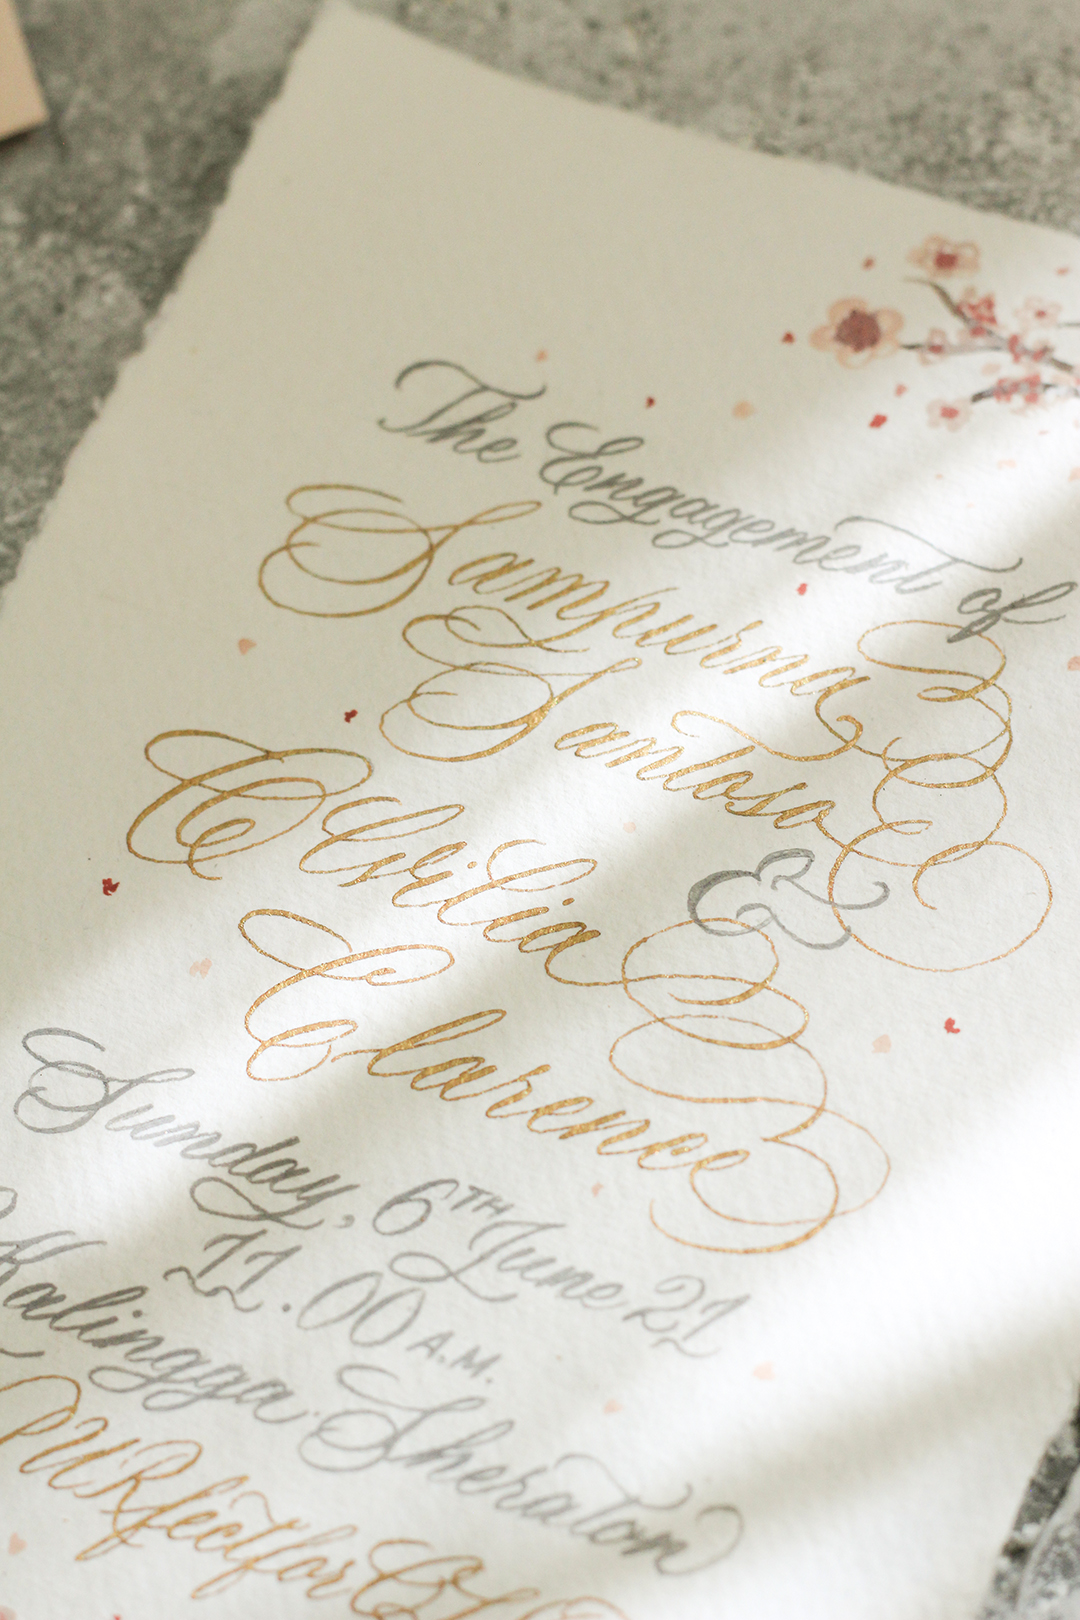 The Engagement of
Sampurna
Santoso
&
Clarence
Sunday, 6TH June 21
11.00 A.M.
Kalingga Sheraton
PURfectfor